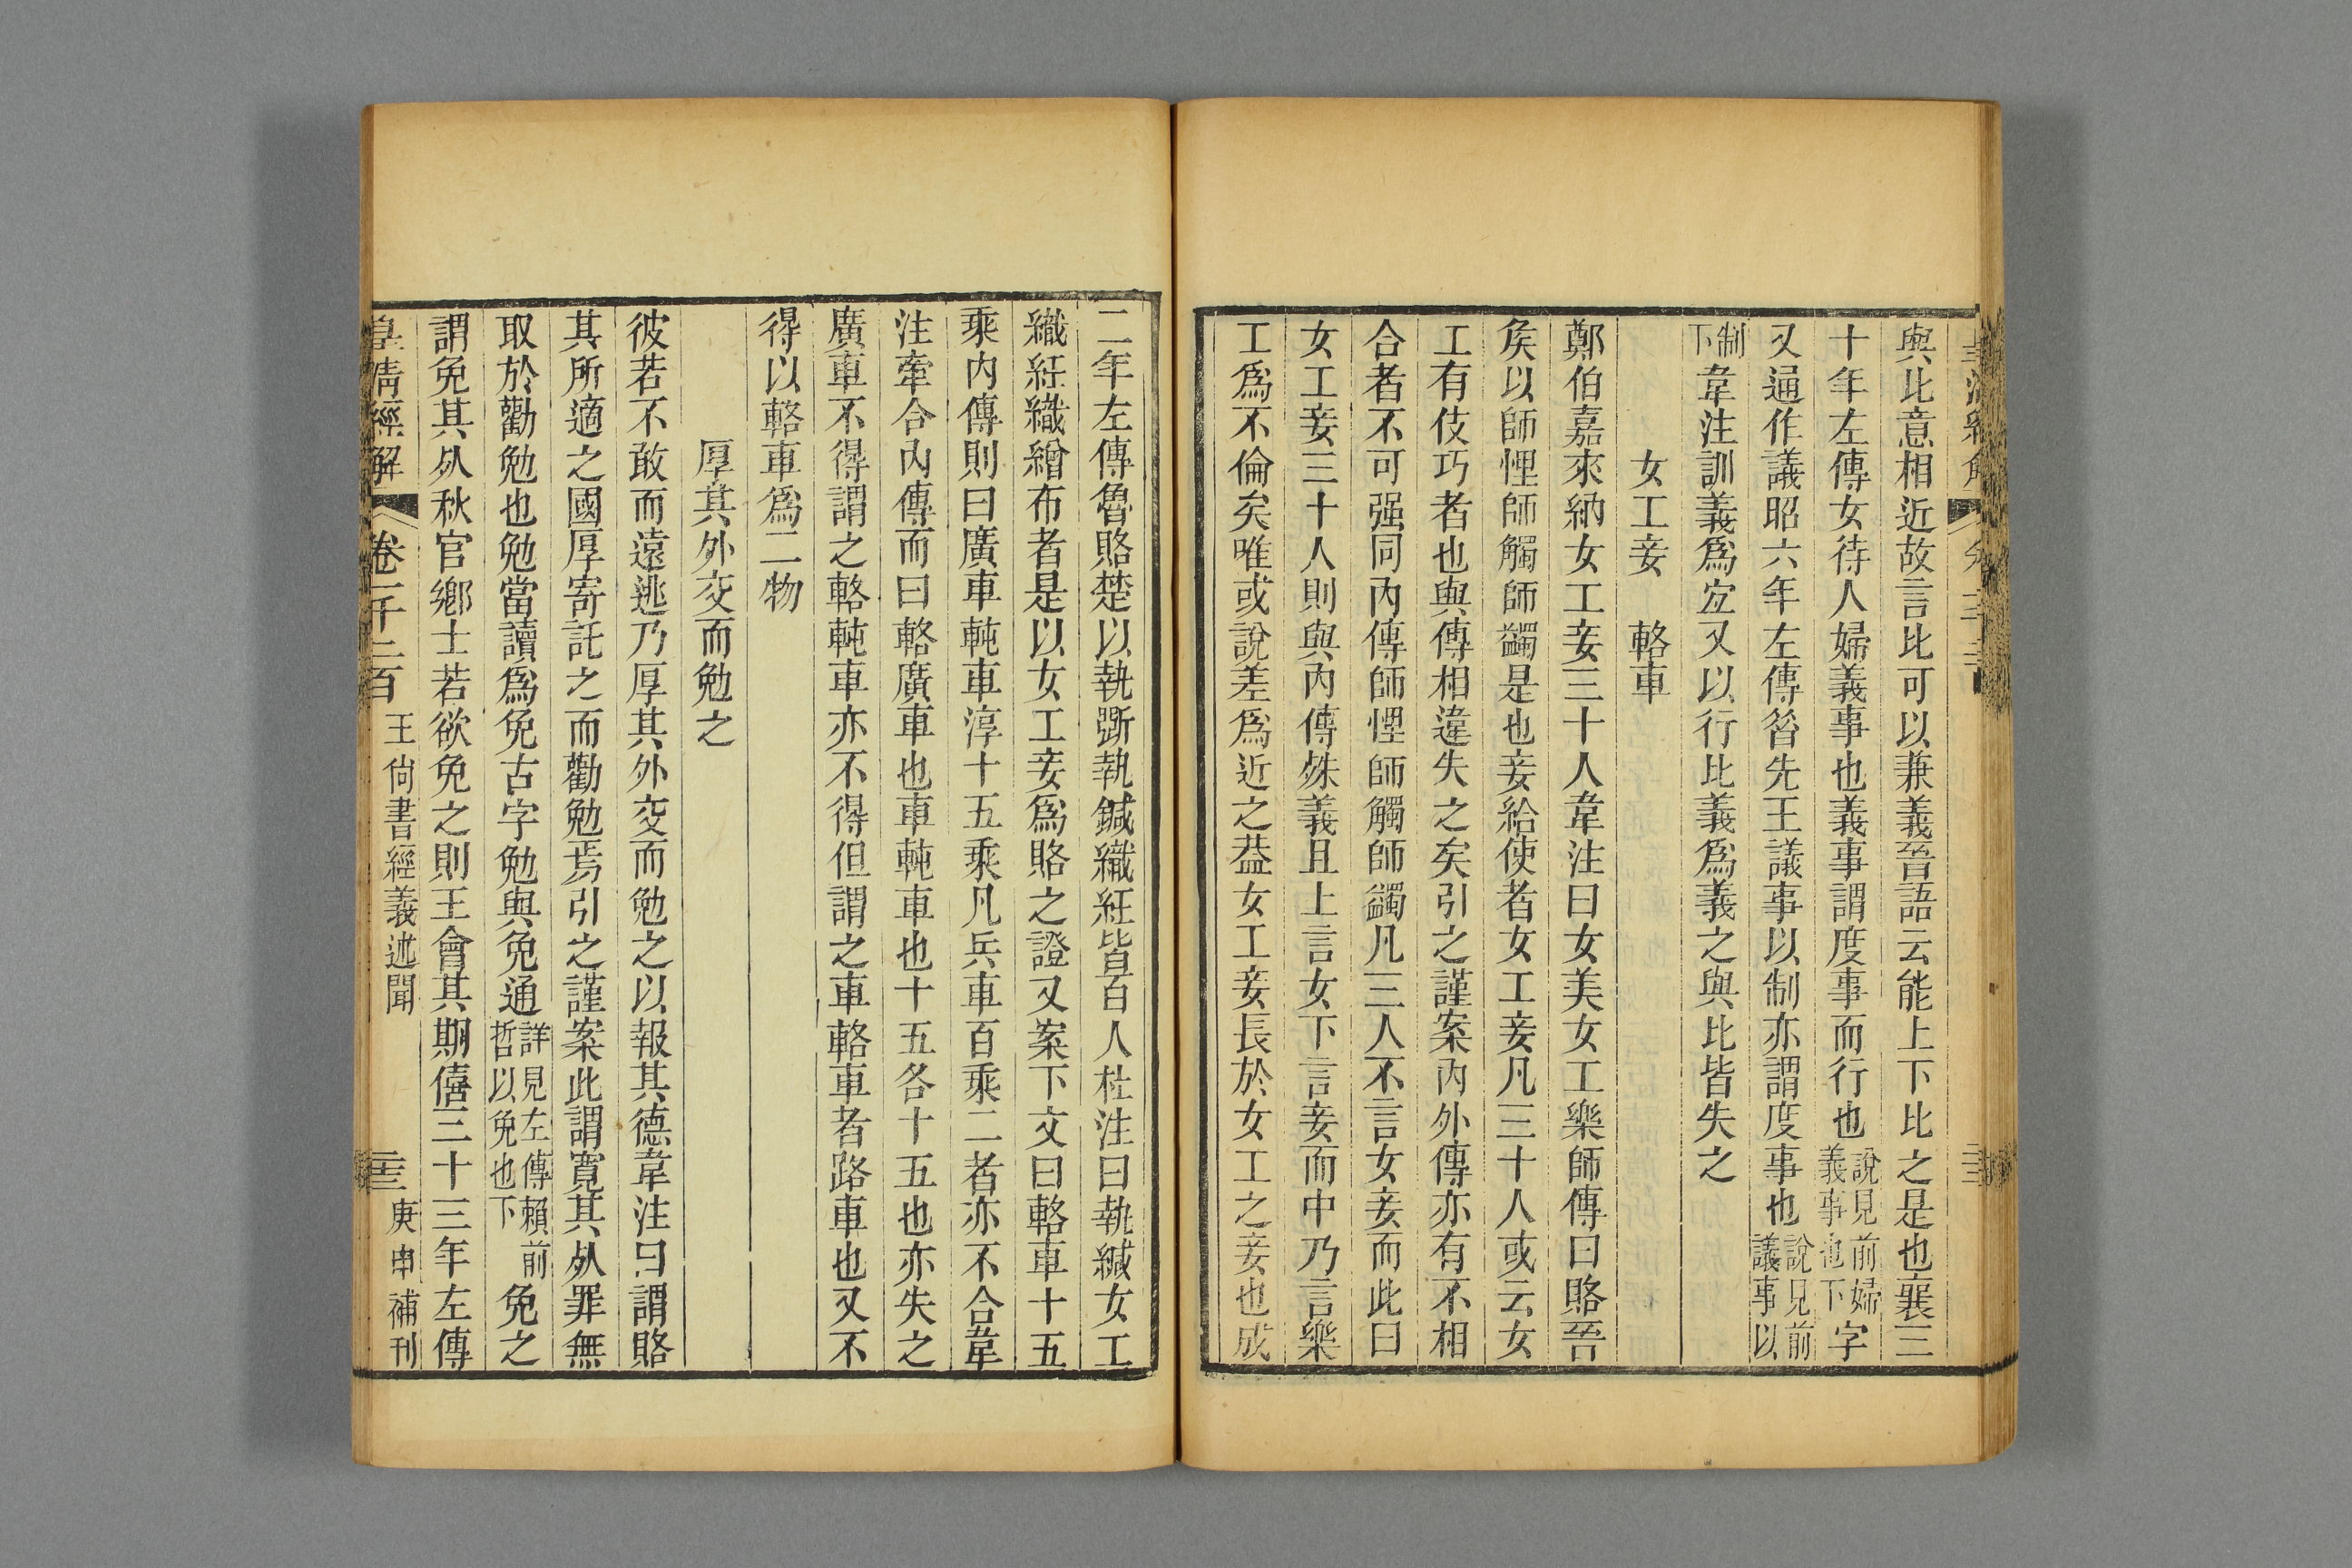 與比意相近故言比可以兼義晉語云能上下比之是也襄三
十年左傳女待人婦義事也義事謂度事而行也說見前婦義事也下字
又通作議昭六年左傳昝先王議事以制亦謂度事也說見前議事以
制下韋注訓義爲宜又以行比義爲義之與比皆失之
女工妾　輅車
鄭伯嘉來納女工妾三十人韋注曰女美女工樂師傳曰賂晉
矦以師悝師觸師蠲是也妾給使者女工妾凡三十人或云女
工有伎巧者也與傳相違失之矣引之謹案內外傳亦有不相
合者不可强同內傳師悝師觸師蠲凡三人不言女妾而此曰
女工妾三十人則與內傳殊義且上言女下言妾而中乃言樂
工爲不倫矣唯或說差爲近之葢女工妾長於女工之妾也成
二年左傳魯賂楚以執斲執鍼織紝皆百人杜注曰執緘女工
織紝織繒布者是以女工妾爲賂之證又案下文曰輅車十五
乘內傳則曰廣車軘車淳十五乘凡兵車百乘二者亦不合韋
注牽合內傳而曰輅廣車也車軘車也十五各十五也亦失之
廣車不得謂之輅軘車亦不得但謂之車輅車者路車也又不
得以輅車爲二物
厚其外交而勉之
彼若不敢而遠逃乃厚其外交而勉之以報其德韋注曰謂賂
其所適之國厚寄託之而勸勉焉引之謹案此謂寬其㓙罪無
取於勸勉也勉當讀爲免古字勉與免通詳見左傳賴前哲以免也下免之
謂免其㓙秋官鄉士若欲免之則王會其期僖三十三年左傳
皇清經解　卷一千二百　王尙書經義述聞　三十三　庚申補刊